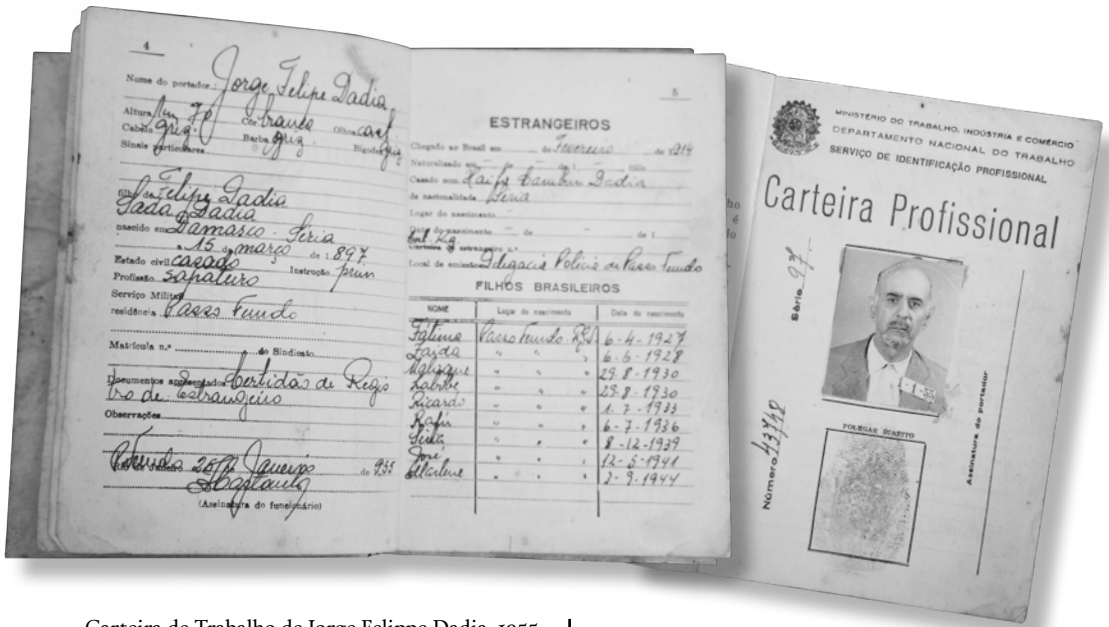 4
Nome do portador: Jorge Felipe Dadia
Altura 1m 70 Côr branca Olhos cast.
Cabelo griz. Barba griz. Bigode griz
Sinais particulares
filho de Felipe Dadia
Sada Dadia
nascido em Damasco - Siria
a 15 de março de 1.897
Estado civil casado Instrução prim
Profissão sapateiro
Serviço Militar
residência Passo Fundo
Matrícula n.º do Sindicato
Documentos apresentados Certidão de Regis
tro de Estrangeiro
Observações
P. Fundo 25 Janeiro de 955
(Assinatura do funcionário)
5
ESTRANGEIROS
Chegado ao Brasil em — de Fevereiro de 1914
Naturalizado em — de — de 1
Casado com Dadia
de nacionalidade Siria
Logar do nascimento —
Data do nascimento — de — de 1
Carteira de estrangeiro n.º
Local de emissão Delegacia Policia de Passo Fundo
FILHOS BRASILEIROS
NOME Logar do nascimento Data do nascimento
Fátima Passo Fundo R.G.S. 6-4-1927
Zaida " " " 6-6-1928
" " " 29-8-1930
" " " 29-8-1930
Ricardo " " " 1-7-1933
" " " 6-7-1936
" " " 8-12-1939
José " " " 12-5-1941
Marlene " " " 2-9-1944
MINISTÉRIO DO TRABALHO, INDÚSTRIA E COMÉRCIO
DEPARTAMENTO NACIONAL DO TRABALHO
SERVIÇO DE IDENTIFICAÇÃO PROFISSIONAL
Carteira Profissional
Série 97
1-55
POLEGAR DIREITO
Número 43748
Assinatura do portador
Carteira de Trabalho de Jorge Felippe Dadia, 1955